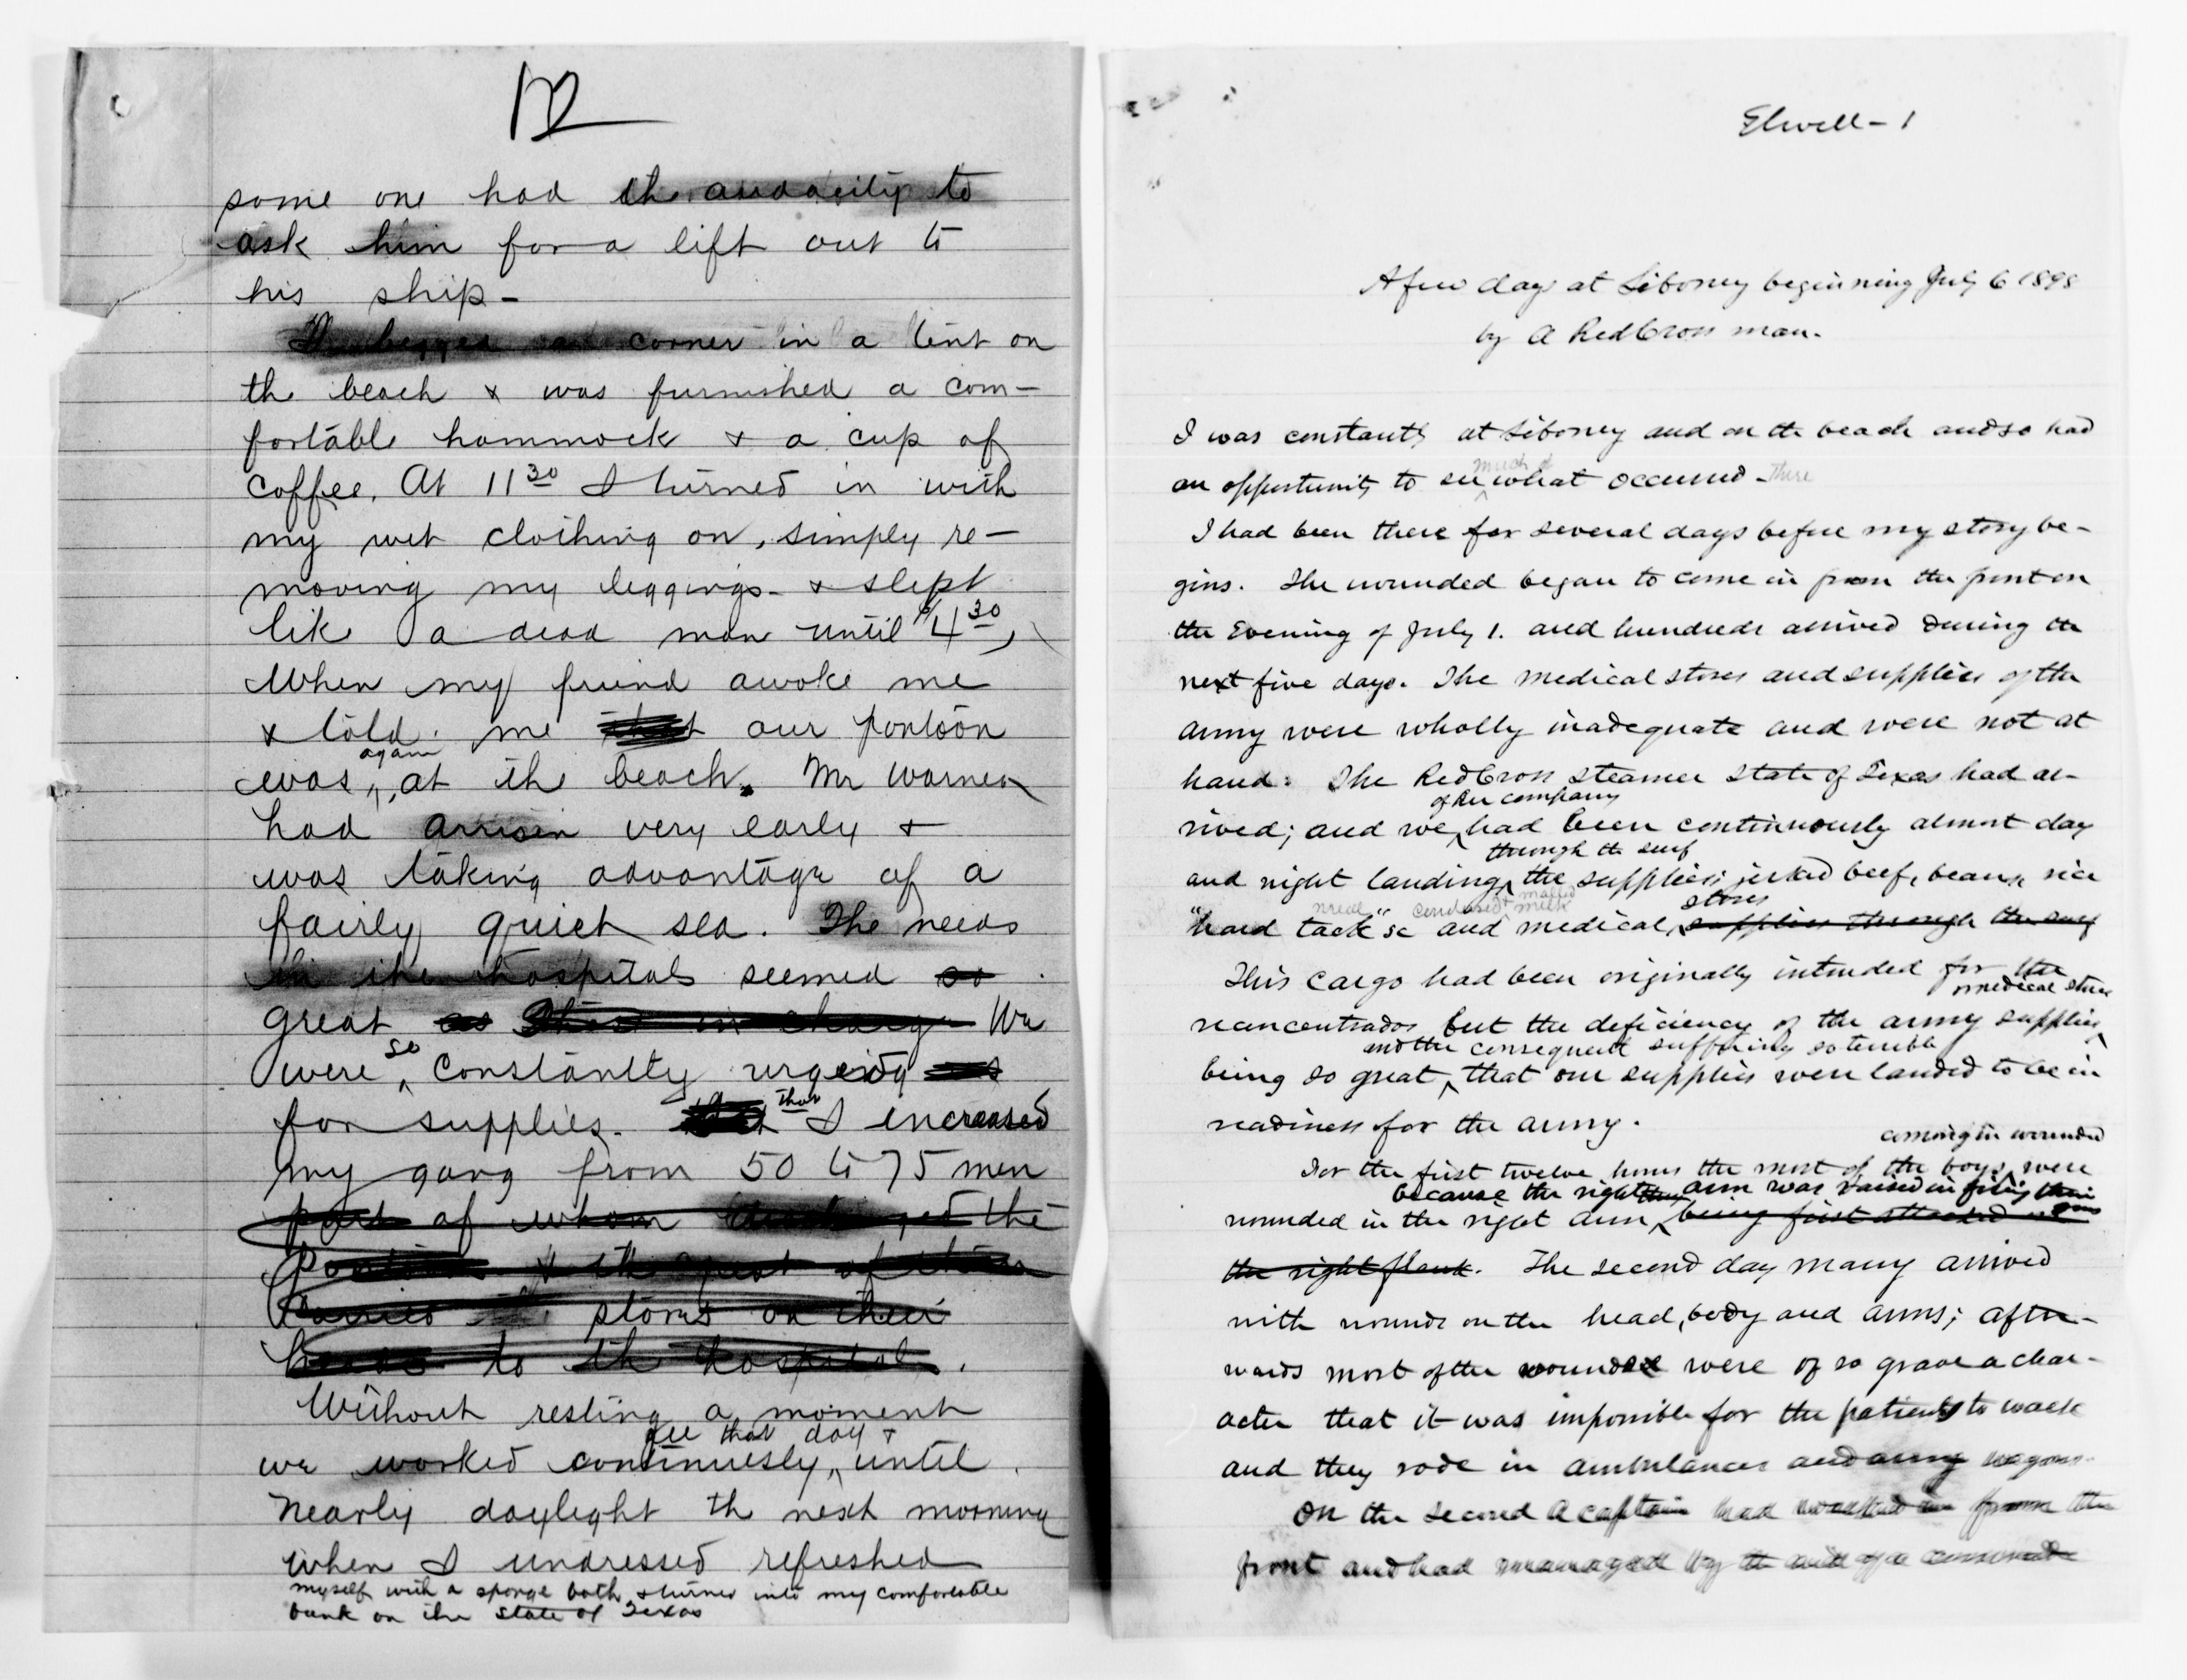 12
some one had the audacity to
ask him for a lift out to
his ship -
I begged a corner in a tent on
the beach & was furnished a com-
fortable hammock & a cup of
coffee. At 11 30 I turned in with
my wet clothing on, simply re-
moving my leggings - & slept
like a dead man until 4 30,
When my friend awoke me
& told me that our pontoon
again
was, at the beach. Mr Warner
had arrisen very early &
was taking advantage of a
fairly quiet sea. The needs
in the hospitals seemed so
great as those in charge We
so
were constantly urgeing us
that
for supplies. I increased
my gang from 50 to 75 men
part of whom the
pontoon & the rest of them
carried stores on their
heads to the hospital.
Without resting a moment
all that day &
we worked continuesly, until
nearly daylight the next morning
when I undressed refreshed
myself with a sponge bath & turned into my comfortable
bunk on the State of Texas
Elwell - 1
A few days at Siboney beginning July 6 1898
by A Red Cross man.
I was constantly at Siboney and on the beach and so had
much of
an opportunity to see what occurred - there
I had been there for several days before my story be-
gins. The wounded began to come in from the front on
the Evening of July 1. and hundreds arrived during the
next five days. The medical stores and supplies of the
army were wholly inadequate and were not at
hand: The Red Cross steamer State of Texas had ar-
of her company
rived; and we had been continuously almost day
through the surf
and night landing the supplies; jerked beef, beans, rice
meal condensed malted milk stores
"hard tack" &c and medical supplies through the surf
This cargo had been originally intended for the
medical stores
reconcentrados but the deficiency of the army supplies
and the consequent suffering so terrible
being so great, that our supplies were landed to be in
readiness for the army.
coming in wounded
For the first twelve hours the most of the boys were
because the right arm was raised in firing their guns
wounded in the right arm, being first attacked on
the right flank. The second day many arrived
with wounds on the head, body and arms; after-
wards most of the wounded were of so grave a char-
acter that it was impossible for the patients to walk
and they rode in ambulances and army wagons.
On the second a captain had walked in from the
front and had managed by the aid of a comrade